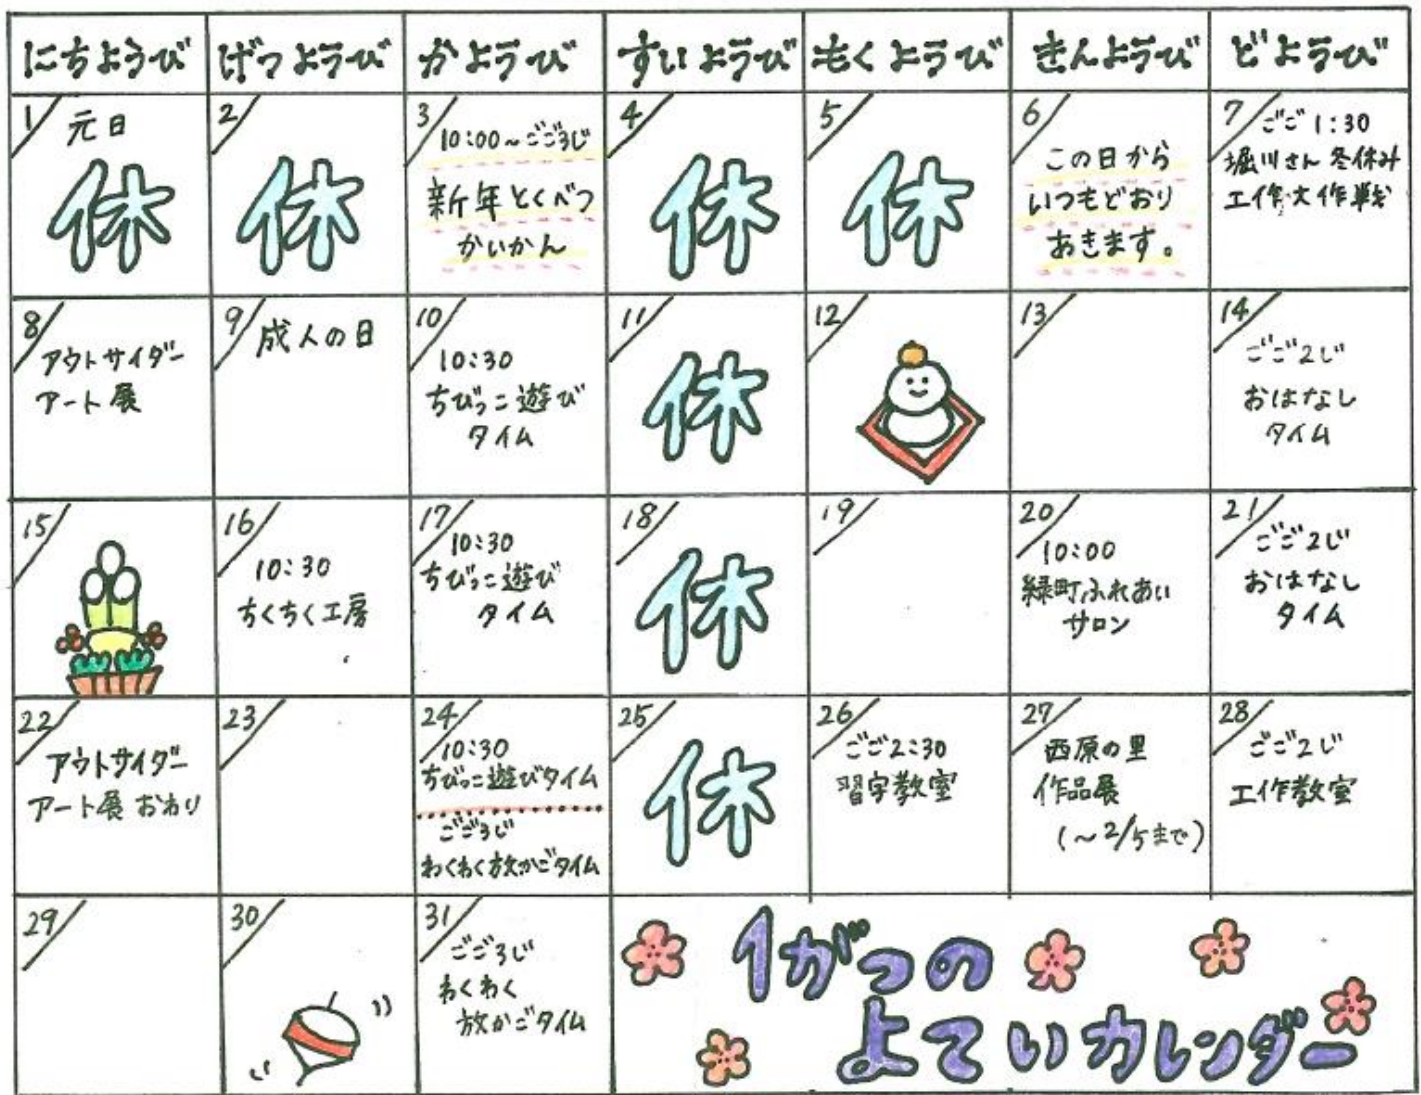 にちようび
げつようび
かようび
すいようび
もくようび
きんようび
どようび
1
元日
休
2
休
3
10:00~ごご3じ
新年とくべつ
かいかん
4
休
5
休
6
この日から
いつもどおり
おきます。
7
ごご1:30
堀川さん冬休み
工作大作戦
8
アウトサイダー
アート展
9
成人の日
10
10:30
ちびっこ遊び
タイム
11
休
12
13
14
ごご2じ
おはなし
タイム
15
16
10:30
ちくちく工房
17
10:30
ちびっこ遊び
タイム
18
休
19
20
10:00
緑町ふれあい
サロン
21
ごご2じ
おはなし
タイム
22
アウトサイダー
アート展おわり
23
24
10:30
ちびっこ遊びタイム
ごご3じ
わくわく放かごタイム
25
休
26
ごご2:30
習字教室
27
西原の里
作品展
(~2/5まで)
28
ごご2じ
工作教室
29
30
31
ごご3じ
わくわく
放かごタイム
1がつの
よていカレンダー